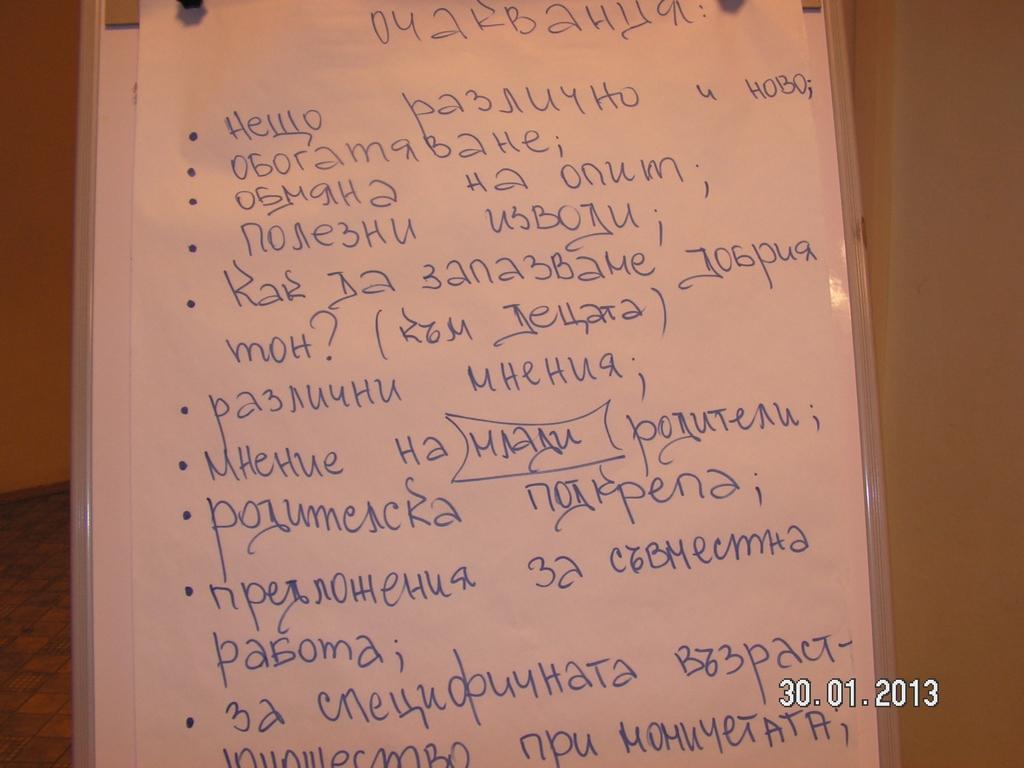 очаквания:
• нещо различно и ново;
• обогатяване;
• обмяна на опит;
• полезни изводи;
• Как да запазваме добрия
тон? (към децата)
• различни мнения;
• мнение на млади родители;
• родителска подкрепа;
• предложения за съвместна
работа;
• за специфичната възраст-
юношество при момичетата;
30.01.2013